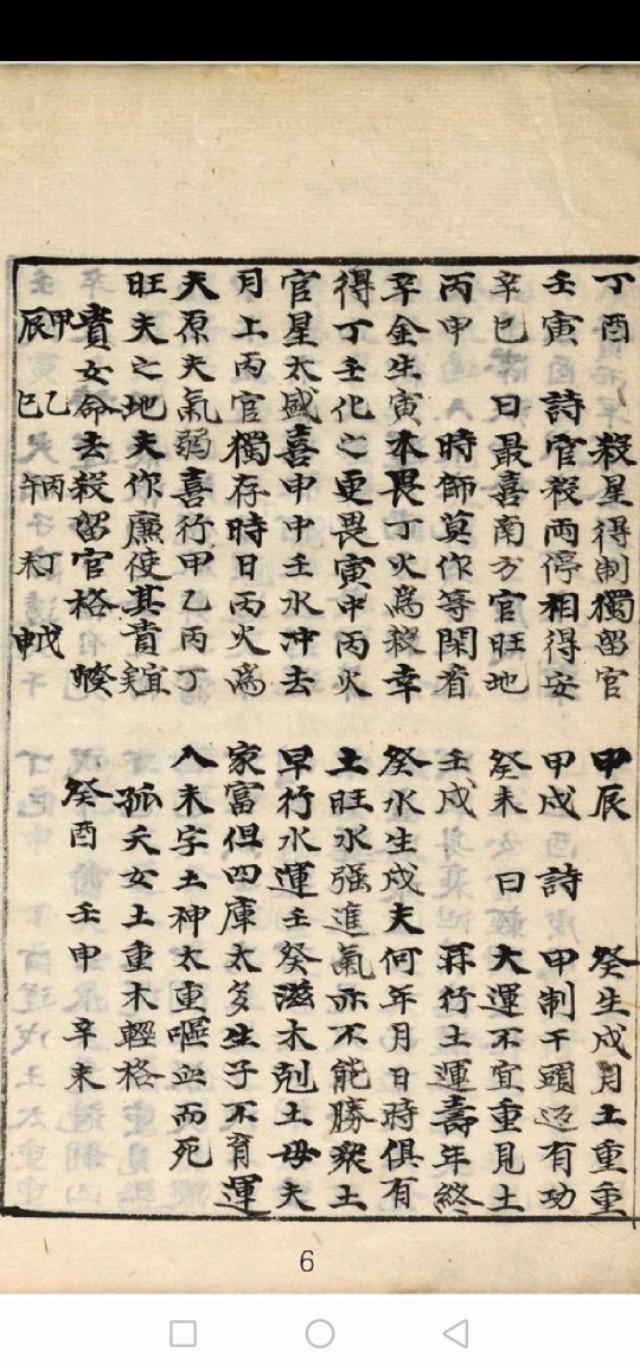 丁酉 殺星得制獨留官
壬寅 詩官殺兩停相得安
辛巳 曰最喜南方官旺地
丙申 時師莫作等閑看
辛金生寅本畏丁火為殺幸
得丁壬化之更畏寅中丙火
官星太盛喜申中壬水冲去
月上丙官獨存時日丙火為
夫原夫氣弱喜行甲乙丙丁
旺夫之地夫作廉使其貴宜
貴女命去殺留官格
甲辰 乙巳 丙午 丁未 戊申
甲辰 癸生戌月土重重
甲戌 詩 甲制干頭有功
癸未 曰 大運不宜重見土
壬戌 再行土運壽年終
癸水生戌夫何年月日時俱有
土旺水强進氣亦不能勝衆土
早行水運壬癸滋木剋土母夫
家富但四庫太多生子不育運
入未字土神太重嘔血而死
孤夭女土重木輕格
癸酉 壬申 辛未
6